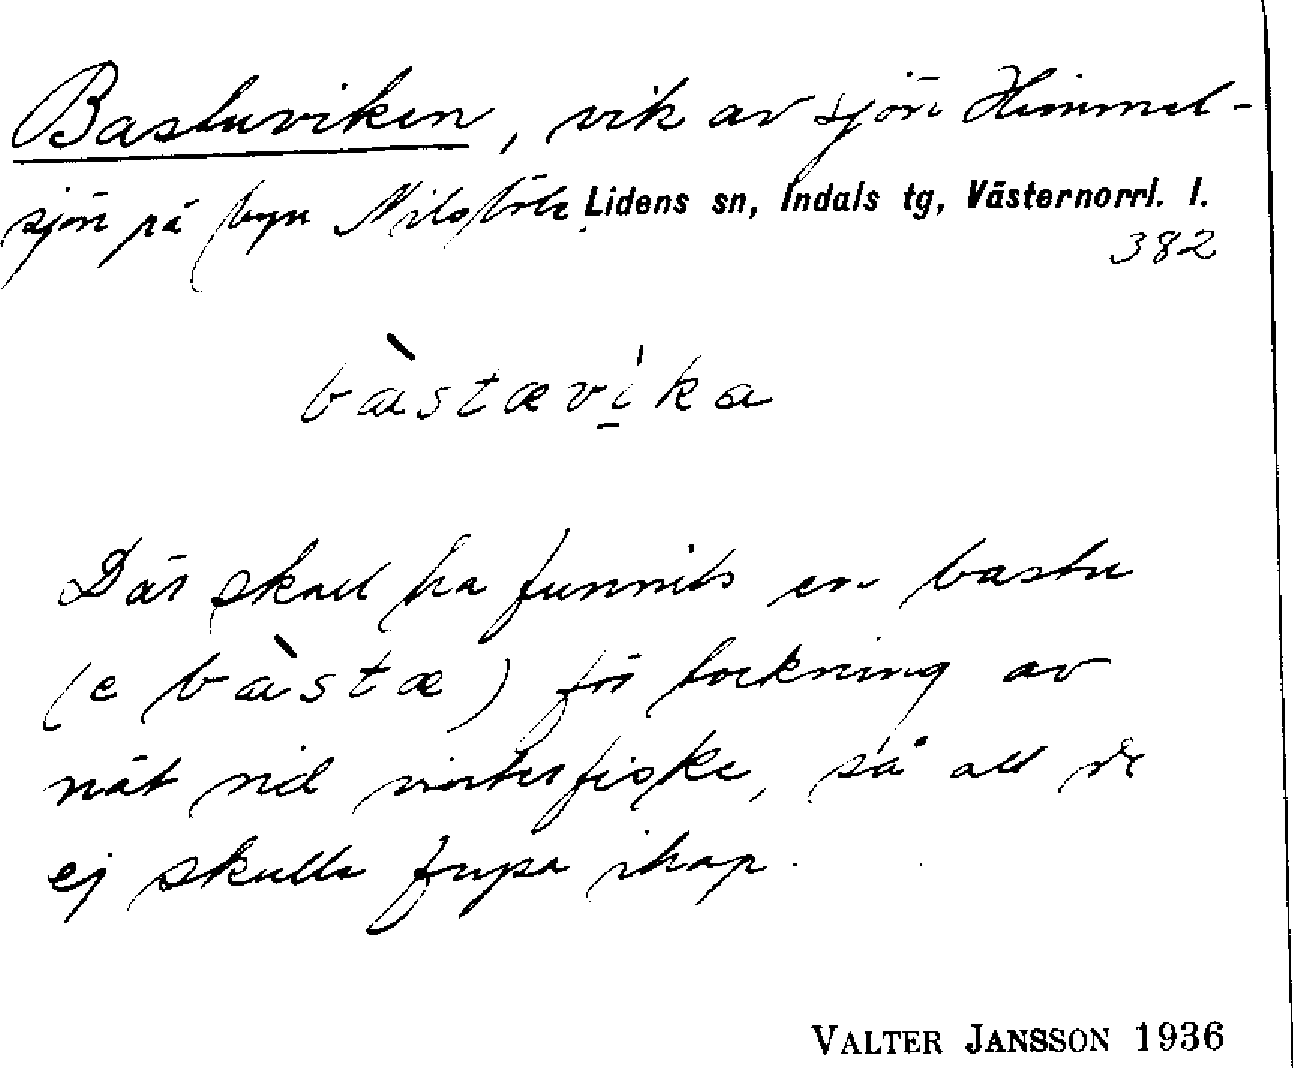 Bastuviken, vik av sjön Himmel-
sjön på byn Nilsböle Lidens sn, Indals tg, Västernorrl. l.
382
bàstævi̱ka
Där skall ha funnits en bastu
(e bàstæ) för torkning av
nät vid vinterfiske, så att de
ej skulle frysa ihop.
VALTER JANSSON 1936